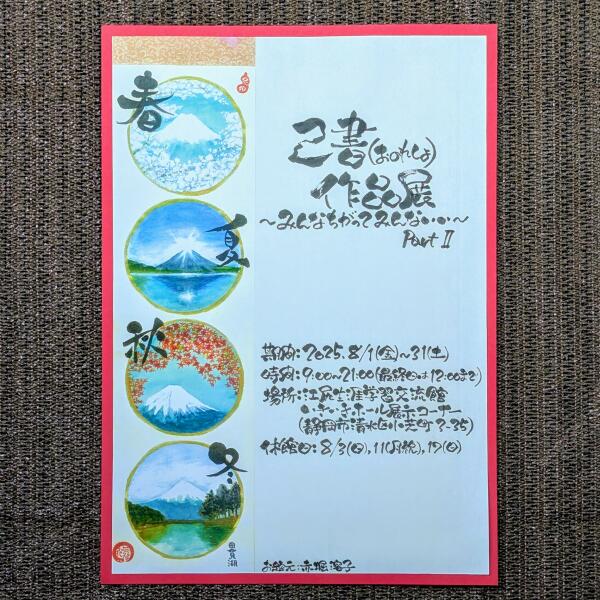 春
夏
秋
冬
田貫湖
己書(おのれしょ)
作品展
～みんなちがってみんないい～
Part Ⅱ
期間:2025.8/1(金)~31(土)
時間:9:00~21:00(最終日は12:00まで)
場所:江尻生涯学習交流館
いきいきホール展示コーナー
(静岡市清水区小芝町2-35)
休館日:8/3(日),11(月祝),17(日)
お絵元:赤堀